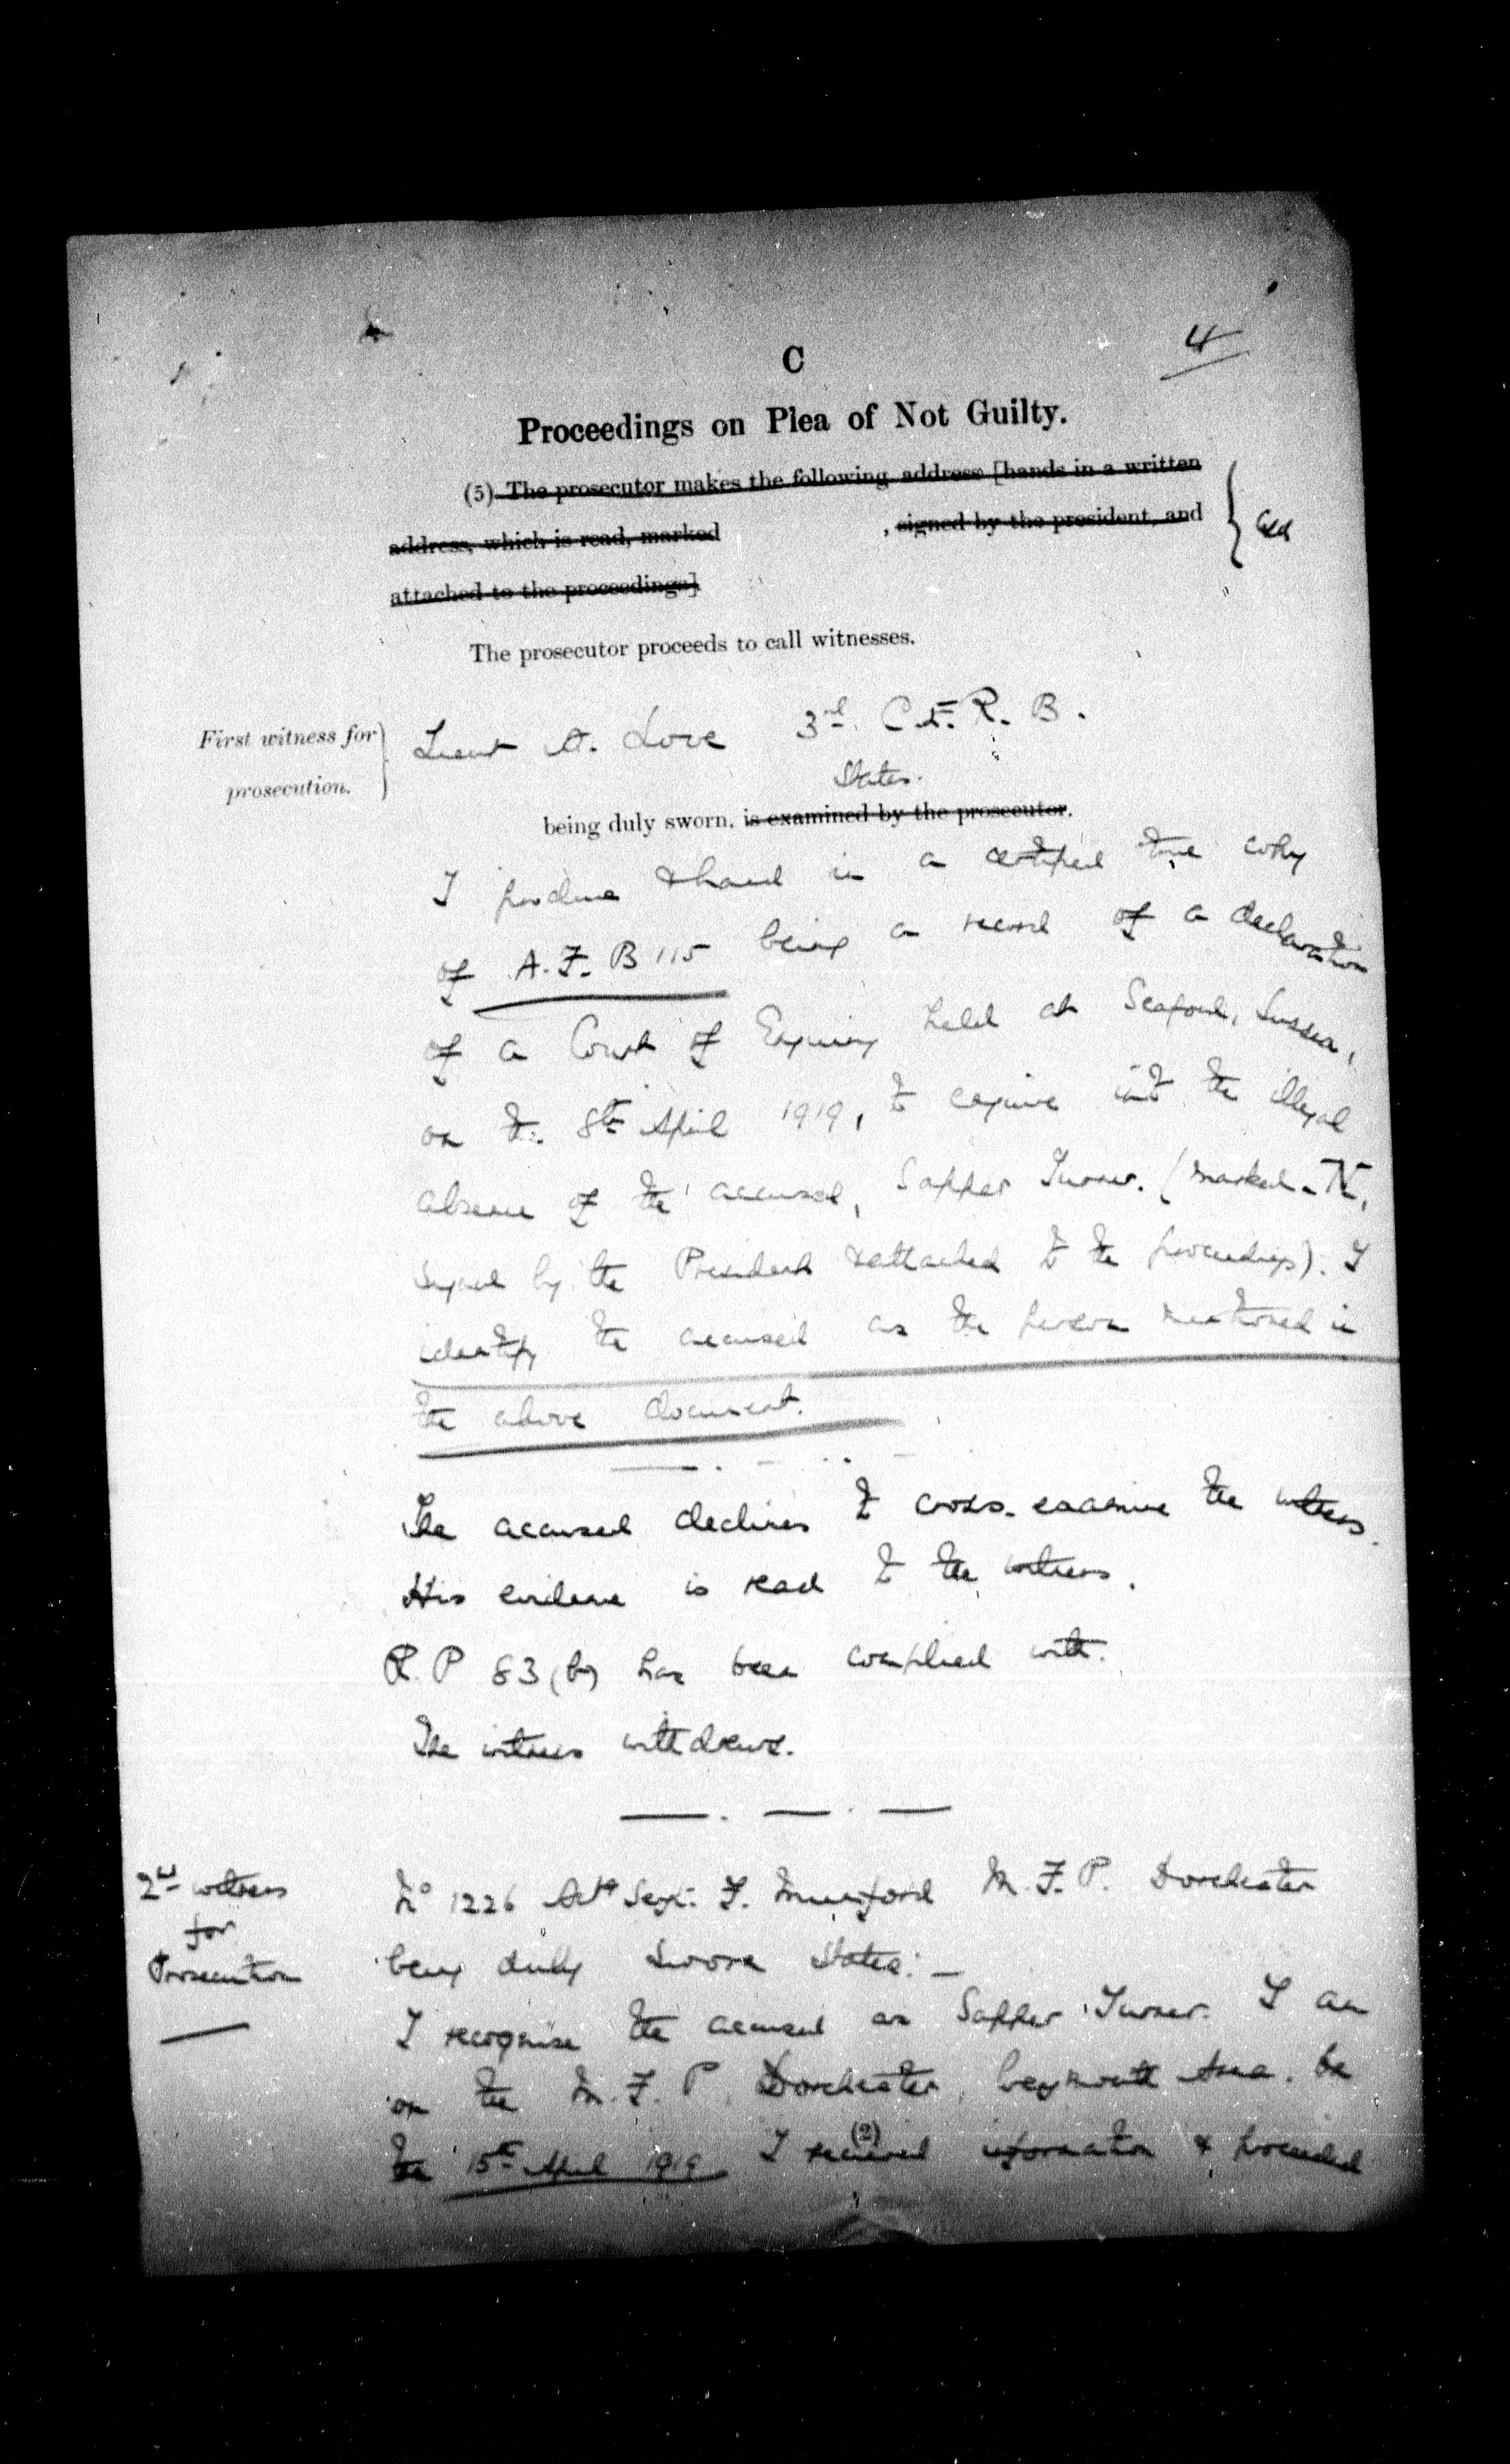 C
4
Proceedings on Plea of Not Guilty.
(5) The prosecutor makes the following address [hands in a written
address, which is read, marked , signed by the president, and
attached to the proceedings]
The prosecutor proceeds to call witnesses.
First witness for
prosecution.
Lieut A. Love 3rd C.E.R.B.
States.
being duly sworn, is examined by the prosecutor.
I produce & hand in a certified true copy
of A.F. B 115 being a record of a declaration
of a Court of Enquiry held at Seaford, Sussex,
on the 8th April 1919, to enquire into the illegal
absence of the accused, Sapper Turner. (marked N,
signed by the President & attached to the proceedings). I
identify the accused as the person mentioned in
the above document.
The accused declines to cross-examine the witness.
His evidence is read to the witness.
R.P 83 (b) has been complied with.
The witness withdraws.
2nd witness
for
Prosecution
No 1226 A/Sergt. F. Mumford M.F.P. Dorchester
being duly sworn states:-
I recognise the accused as Sapper Turner. I am
on the M.F.P. Dorchester, Weymouth Area. On
the 15th April 1919 I received information & proceeded
(2)